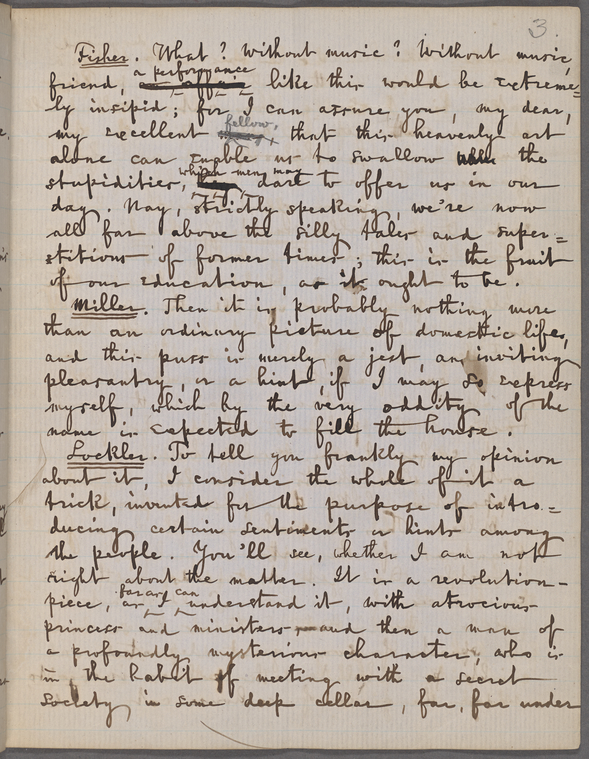 3.
Fisher. What? Without music? Without music,
friend, a performance like this would be extreme=
ly insipid; for I can assure you, my dear,
my excellent fellow, that this heavenly art
alone can enable us to swallow the
stupidities, which men may dare to offer us in our
day. Nay, strictly speaking, we're now
all far above the silly tales and super=
stitions of former times; this is the fruit
of our education, as it ought to be.
Miller. Then it is probably nothing more
than an ordinary picture of domestic life,
and this puss is merely a jest, an inviting
pleasantry, or a hint, if I may so express
myself, which by the very oddity of the
name is expected to fill the house.
Lockler. To tell you frankly my opinion
about it, I consider the whole of it a
trick, invented for the purpose of intro=
ducing certain sentiments or hints among
the people. You'll see, whether I am not
right about the matter. It is a revolution-
piece, as far as I can understand it, with atrocious
princess and ministers and then a man of
a profoundly mysterious character, who is
in the habit of meeting with a secret
society in some deep cellar, far, far under